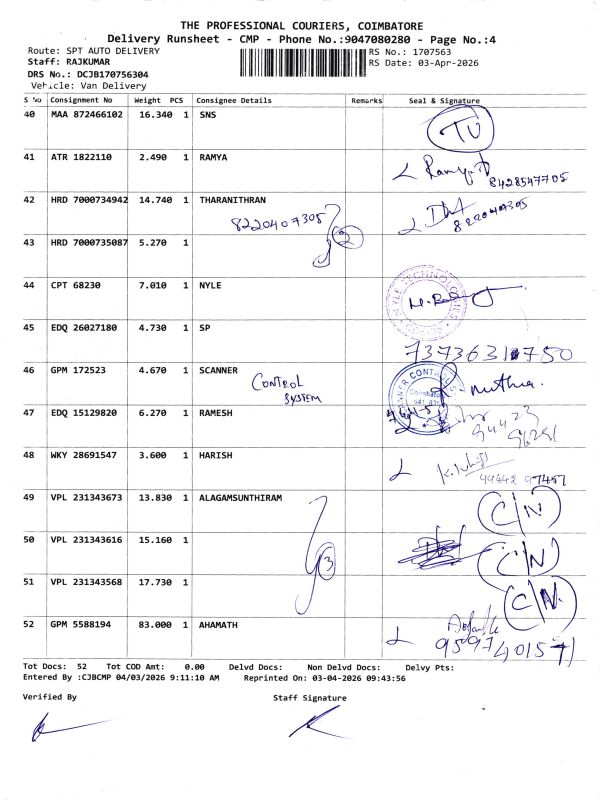 THE PROFESSIONAL COURIERS, COIMBATORE
Delivery Runsheet - CMP - Phone No.:9047080280 - Page No.:4
Route: SPT AUTO DELIVERY RS No.: 1707563
Staff: RAJKUMAR RS Date: 03-Apr-2026
DRS No.: DCJB170756304
Vehicle: Van Delivery
S No Consignment No Weight PCS Consignee Details Remarks Seal & Signature
40 MAA 872466102 16.340 1 SNS TU
41 ATR 1822110 2.490 1 RAMYA Ramya
8428547705
42 HRD 7000734942 14.740 1 THARANITHRAN
8220407305 2 8220407305
43 HRD 7000735087 5.270 1
44 CPT 68230 7.010 1 NYLE NYLE TECHNOLOGIES
45 EDQ 26027180 4.730 1 SP
46 GPM 172523 4.670 1 SCANNER
CONTROL SYSTEM Muthu.
47 EDQ 15129820 6.270 1 RAMESH
48 WKY 28691547 3.600 1 HARISH
49 VPL 231343673 13.830 1 ALAGAMSUNTHIRAM C/N
50 VPL 231343616 15.160 1 3 C/N
51 VPL 231343568 17.730 1 C/N
52 GPM 5588194 83.000 1 AHAMATH
Tot Docs: 52 Tot COD Amt: 0.00 Delvd Docs: Non Delvd Docs: Delvy Pts:
Entered By :CJBCMP 04/03/2026 9:11:10 AM Reprinted On: 03-04-2026 09:43:56
Verified By Staff Signature